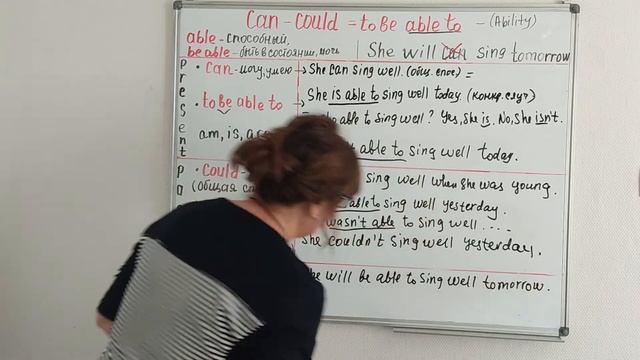 Can - Could = to Be able to - (Ability)
able - способный,
be able - быть в состоянии, мочь
She will can sing tomorrow
Present
• Can - могу, умею → She can sing well. (общ. спос) =
• to Be able to → She is able to sing well today. (конкр. случ)
able to sing well? Yes, She is. No, She isn't.
am, is, are
able to sing well today.
Pa
• Could -
sing well when She was young.
(общая сп
able to sing well yesterday.
wasn't able to sing well ....
She couldn't sing well yesterday.
She will be able to sing well tomorrow.